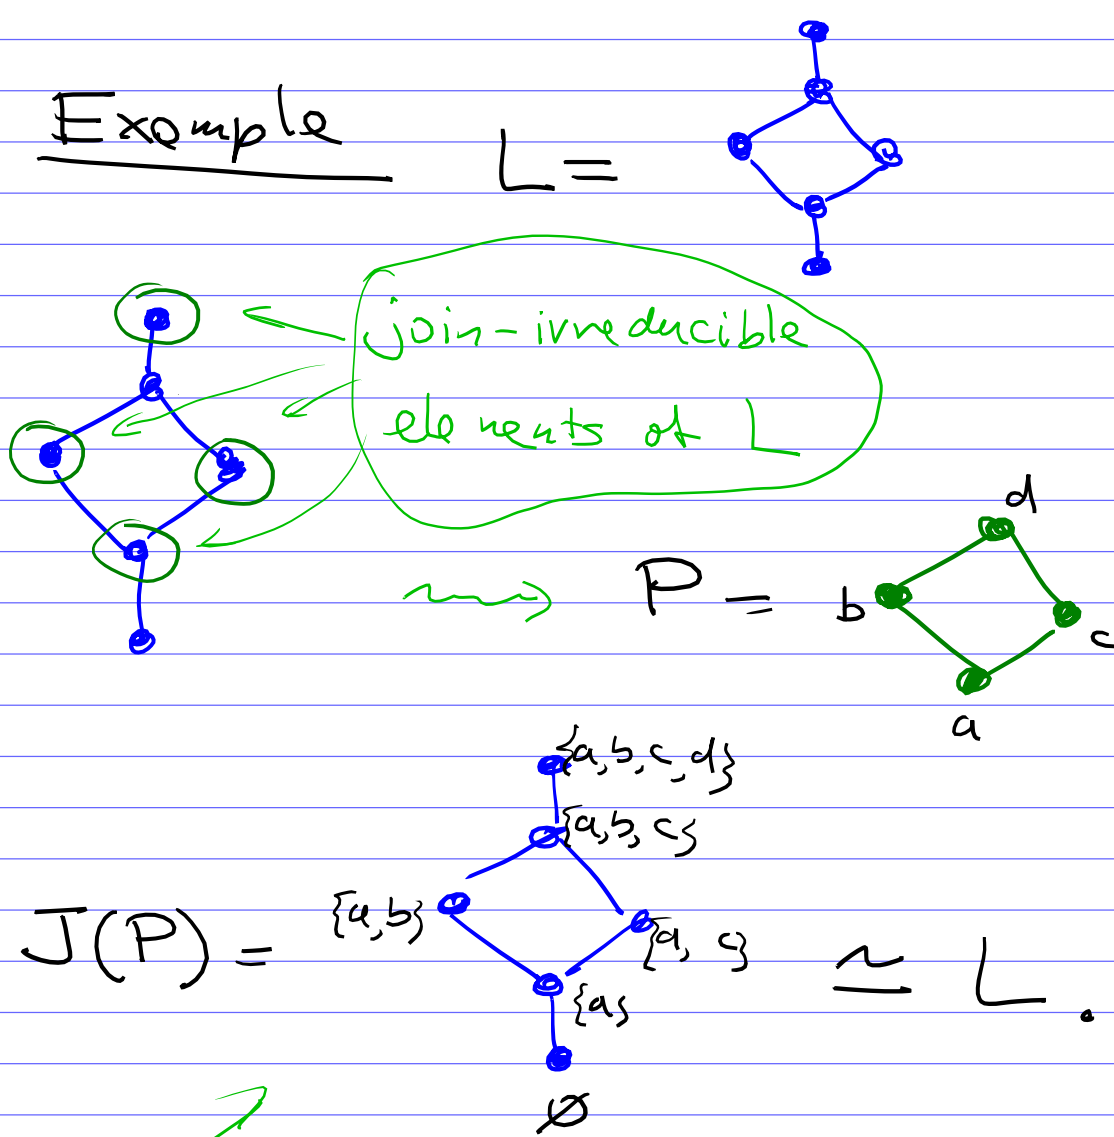 Example L =
join-irreducible
elements of L
d
P = b c
a
{a,b,c,d}
{a,b,c}
{a,b}
J(P) = {a, c} ≃ L.
{a}
∅